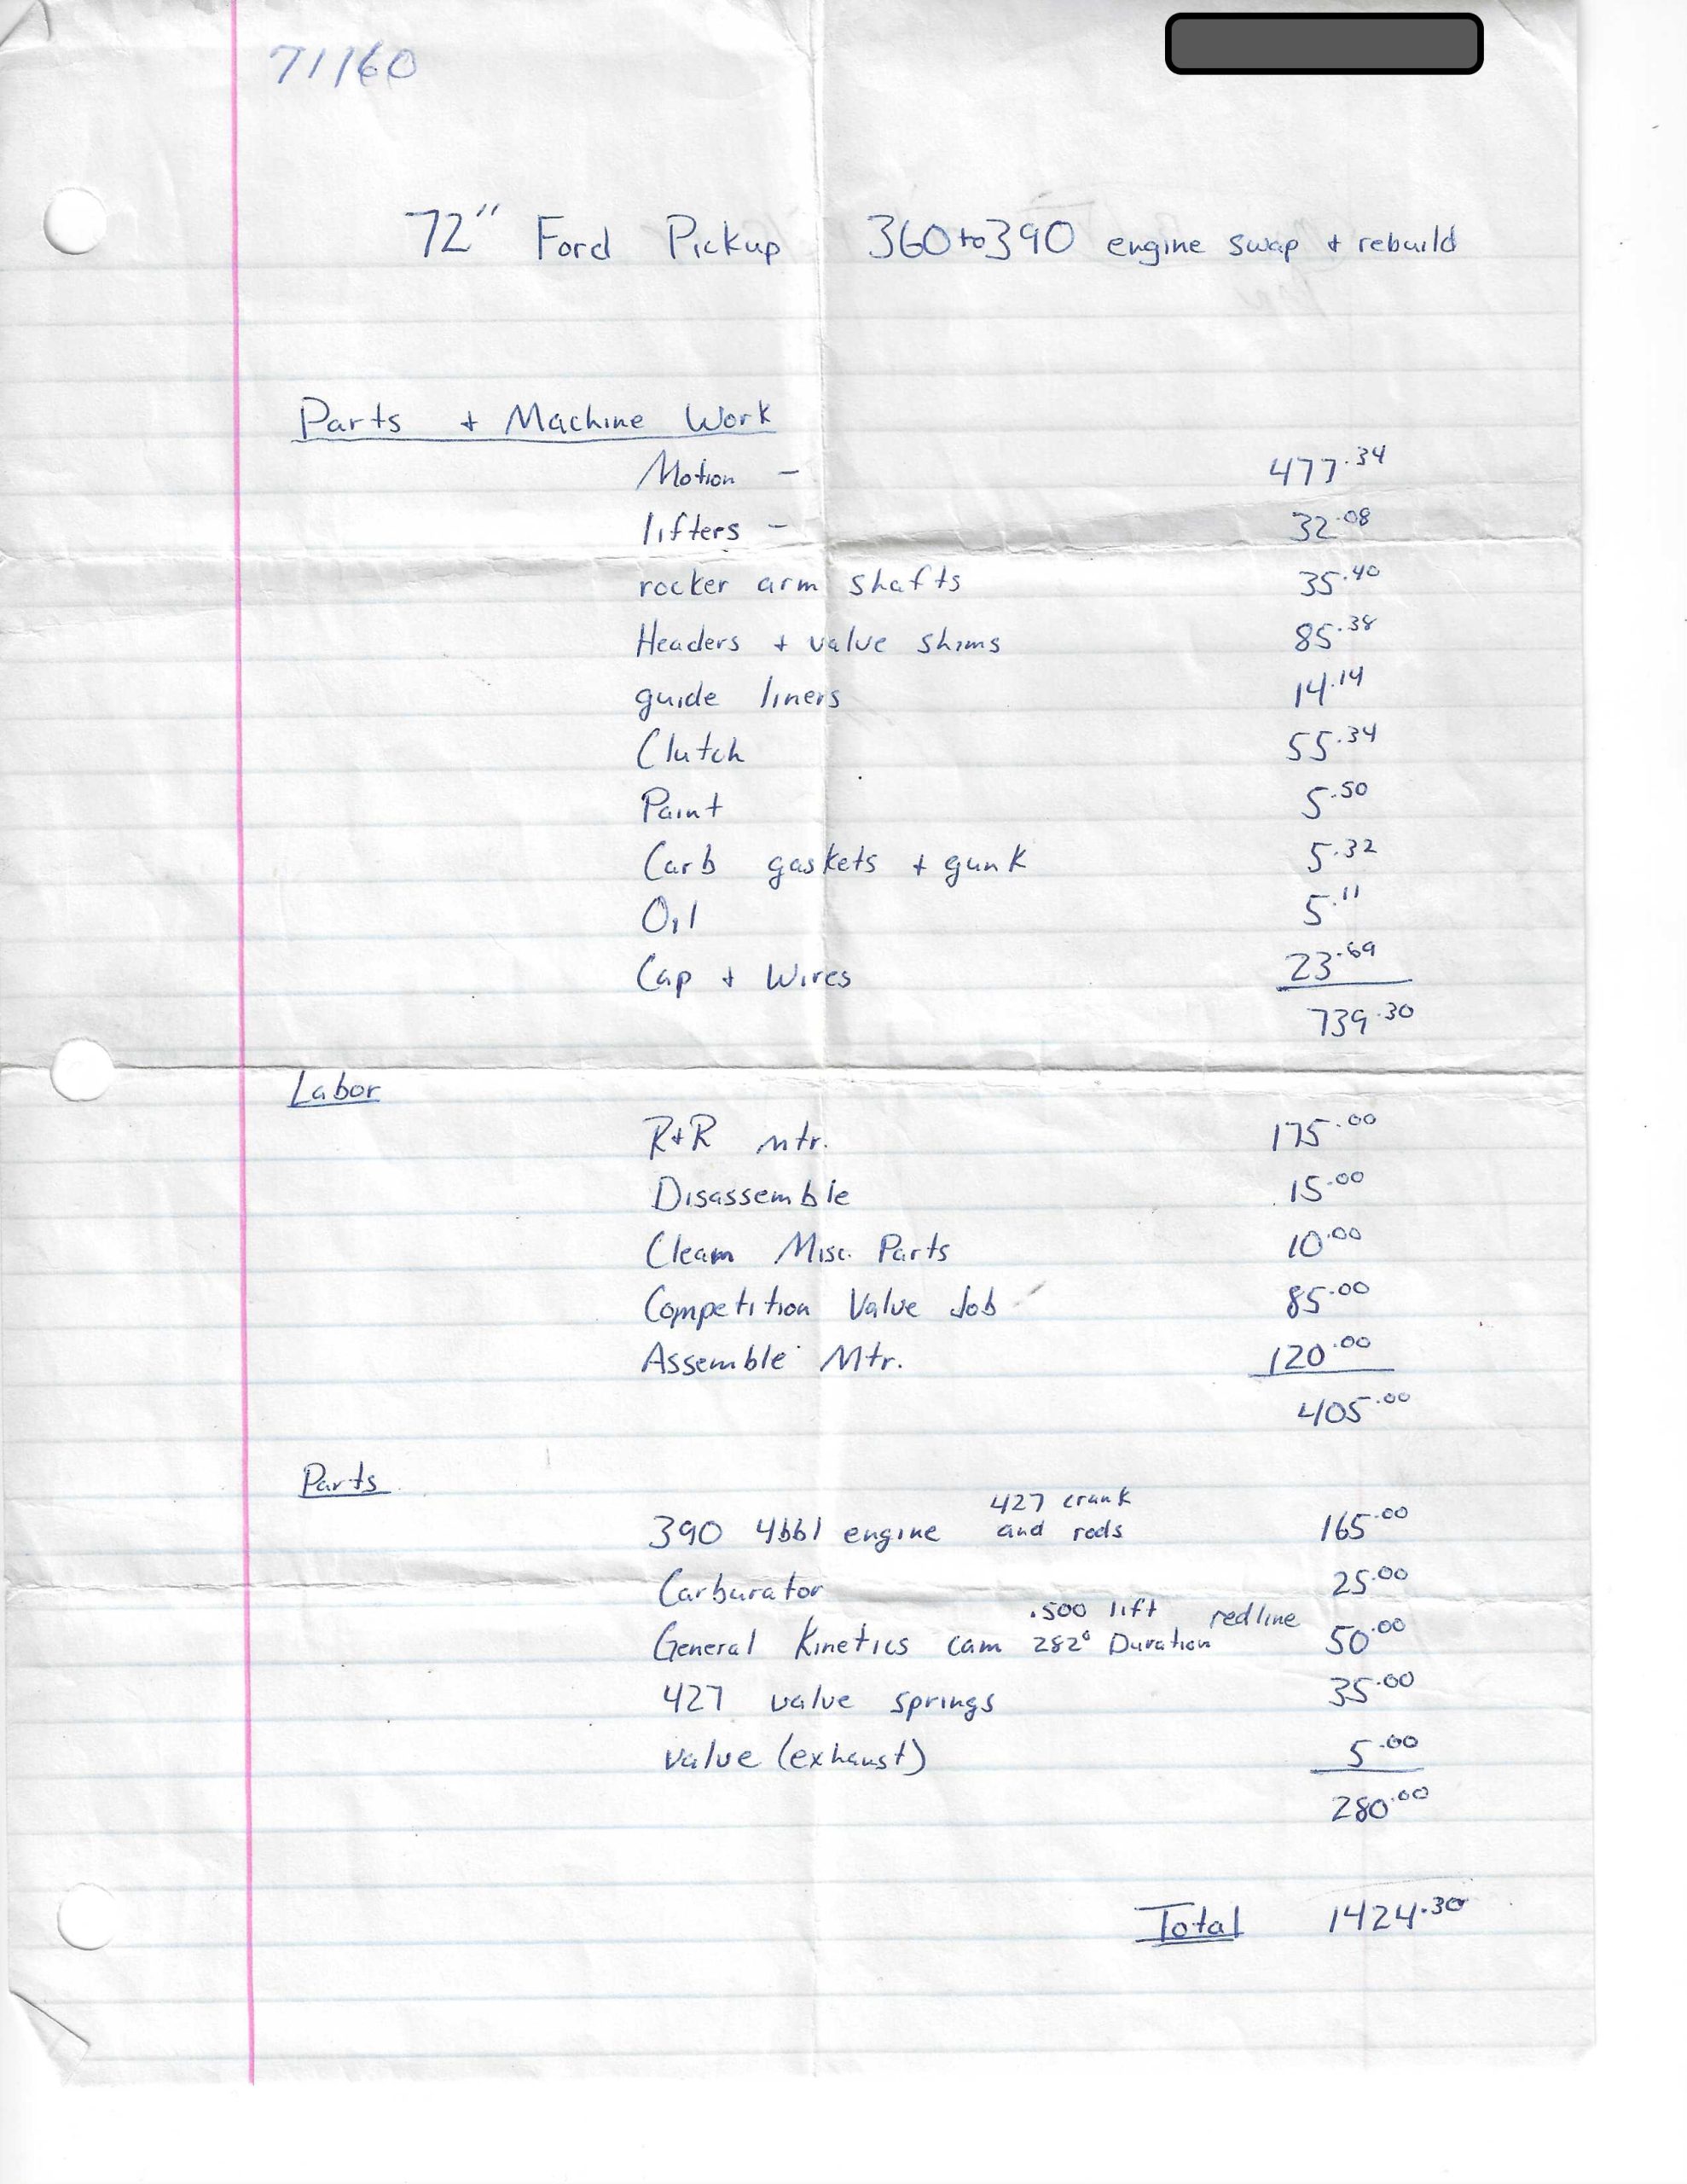 71160
72" Ford Pickup 360 to 390 engine swap + rebuild
Parts + Machine Work
Motion - 477.34
lifters - 32.08
rocker arm shafts 35.40
Headers + valve shims 85.38
guide liners 14.14
Clutch 55.34
Paint 5.50
Carb gaskets + gunk 5.32
Oil 5.11
Cap + Wires 23.69
739.30
Labor
R+R mtr. 175.00
Disassemble 15.00
Clean Misc. Parts 10.00
Competition Valve Job 85.00
Assemble Mtr. 120.00
405.00
Parts
427 crank
390 4bbl engine and rods 165.00
Carburator 25.00
.500 lift redline
General Kinetics cam 282° Duration 50.00
427 valve springs 35.00
valve (exhaust) 5.00
280.00
Total 1424.30